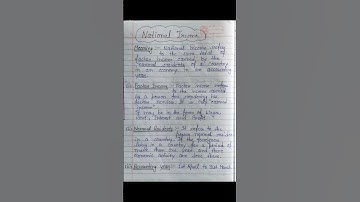 National Income
Meaning :- National Income refers
to the sum total of
factor income earned by the
normal residents of a country
in an economy in an accounting
year.
Factor Income :- Factor income refers
to the income earned
by a person for rendering his
factor services. It is only earned
income.
It may be in the form of Wages,
Rent, Interest and Profit.
Normal Residents :- It refers to the
normal residents
in a country. If the foreigner
living in a country for a period of
more than one year and their
economic activity are done there.
Accounting Year :- 1st April to 31st March